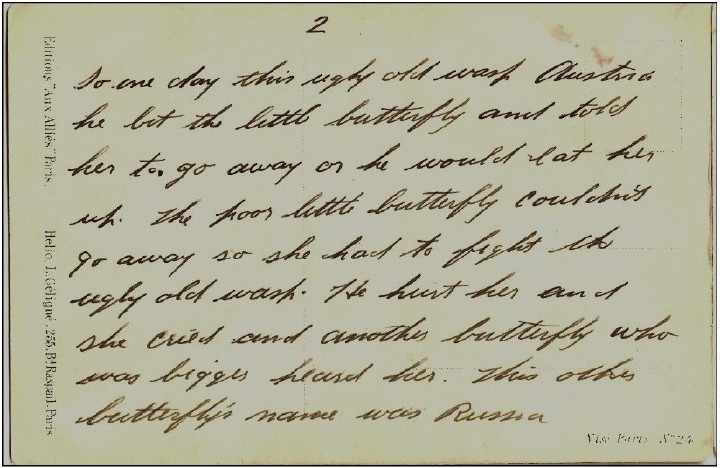 2
So one day this ugly old wasp Austria
he bit the little butterfly and told
her to go away or he would eat her
up. The poor little butterfly couldn't
go away so she had to fight the
ugly old wasp. He hurt her and
she cried and another butterfly who
was bigger heard her. This other
butterfly's name was Russia
Editions "Aux Alliés" Paris.
Helio. L. Géligné. 255. Bd Raspail-Paris
Visé Paris. No 24